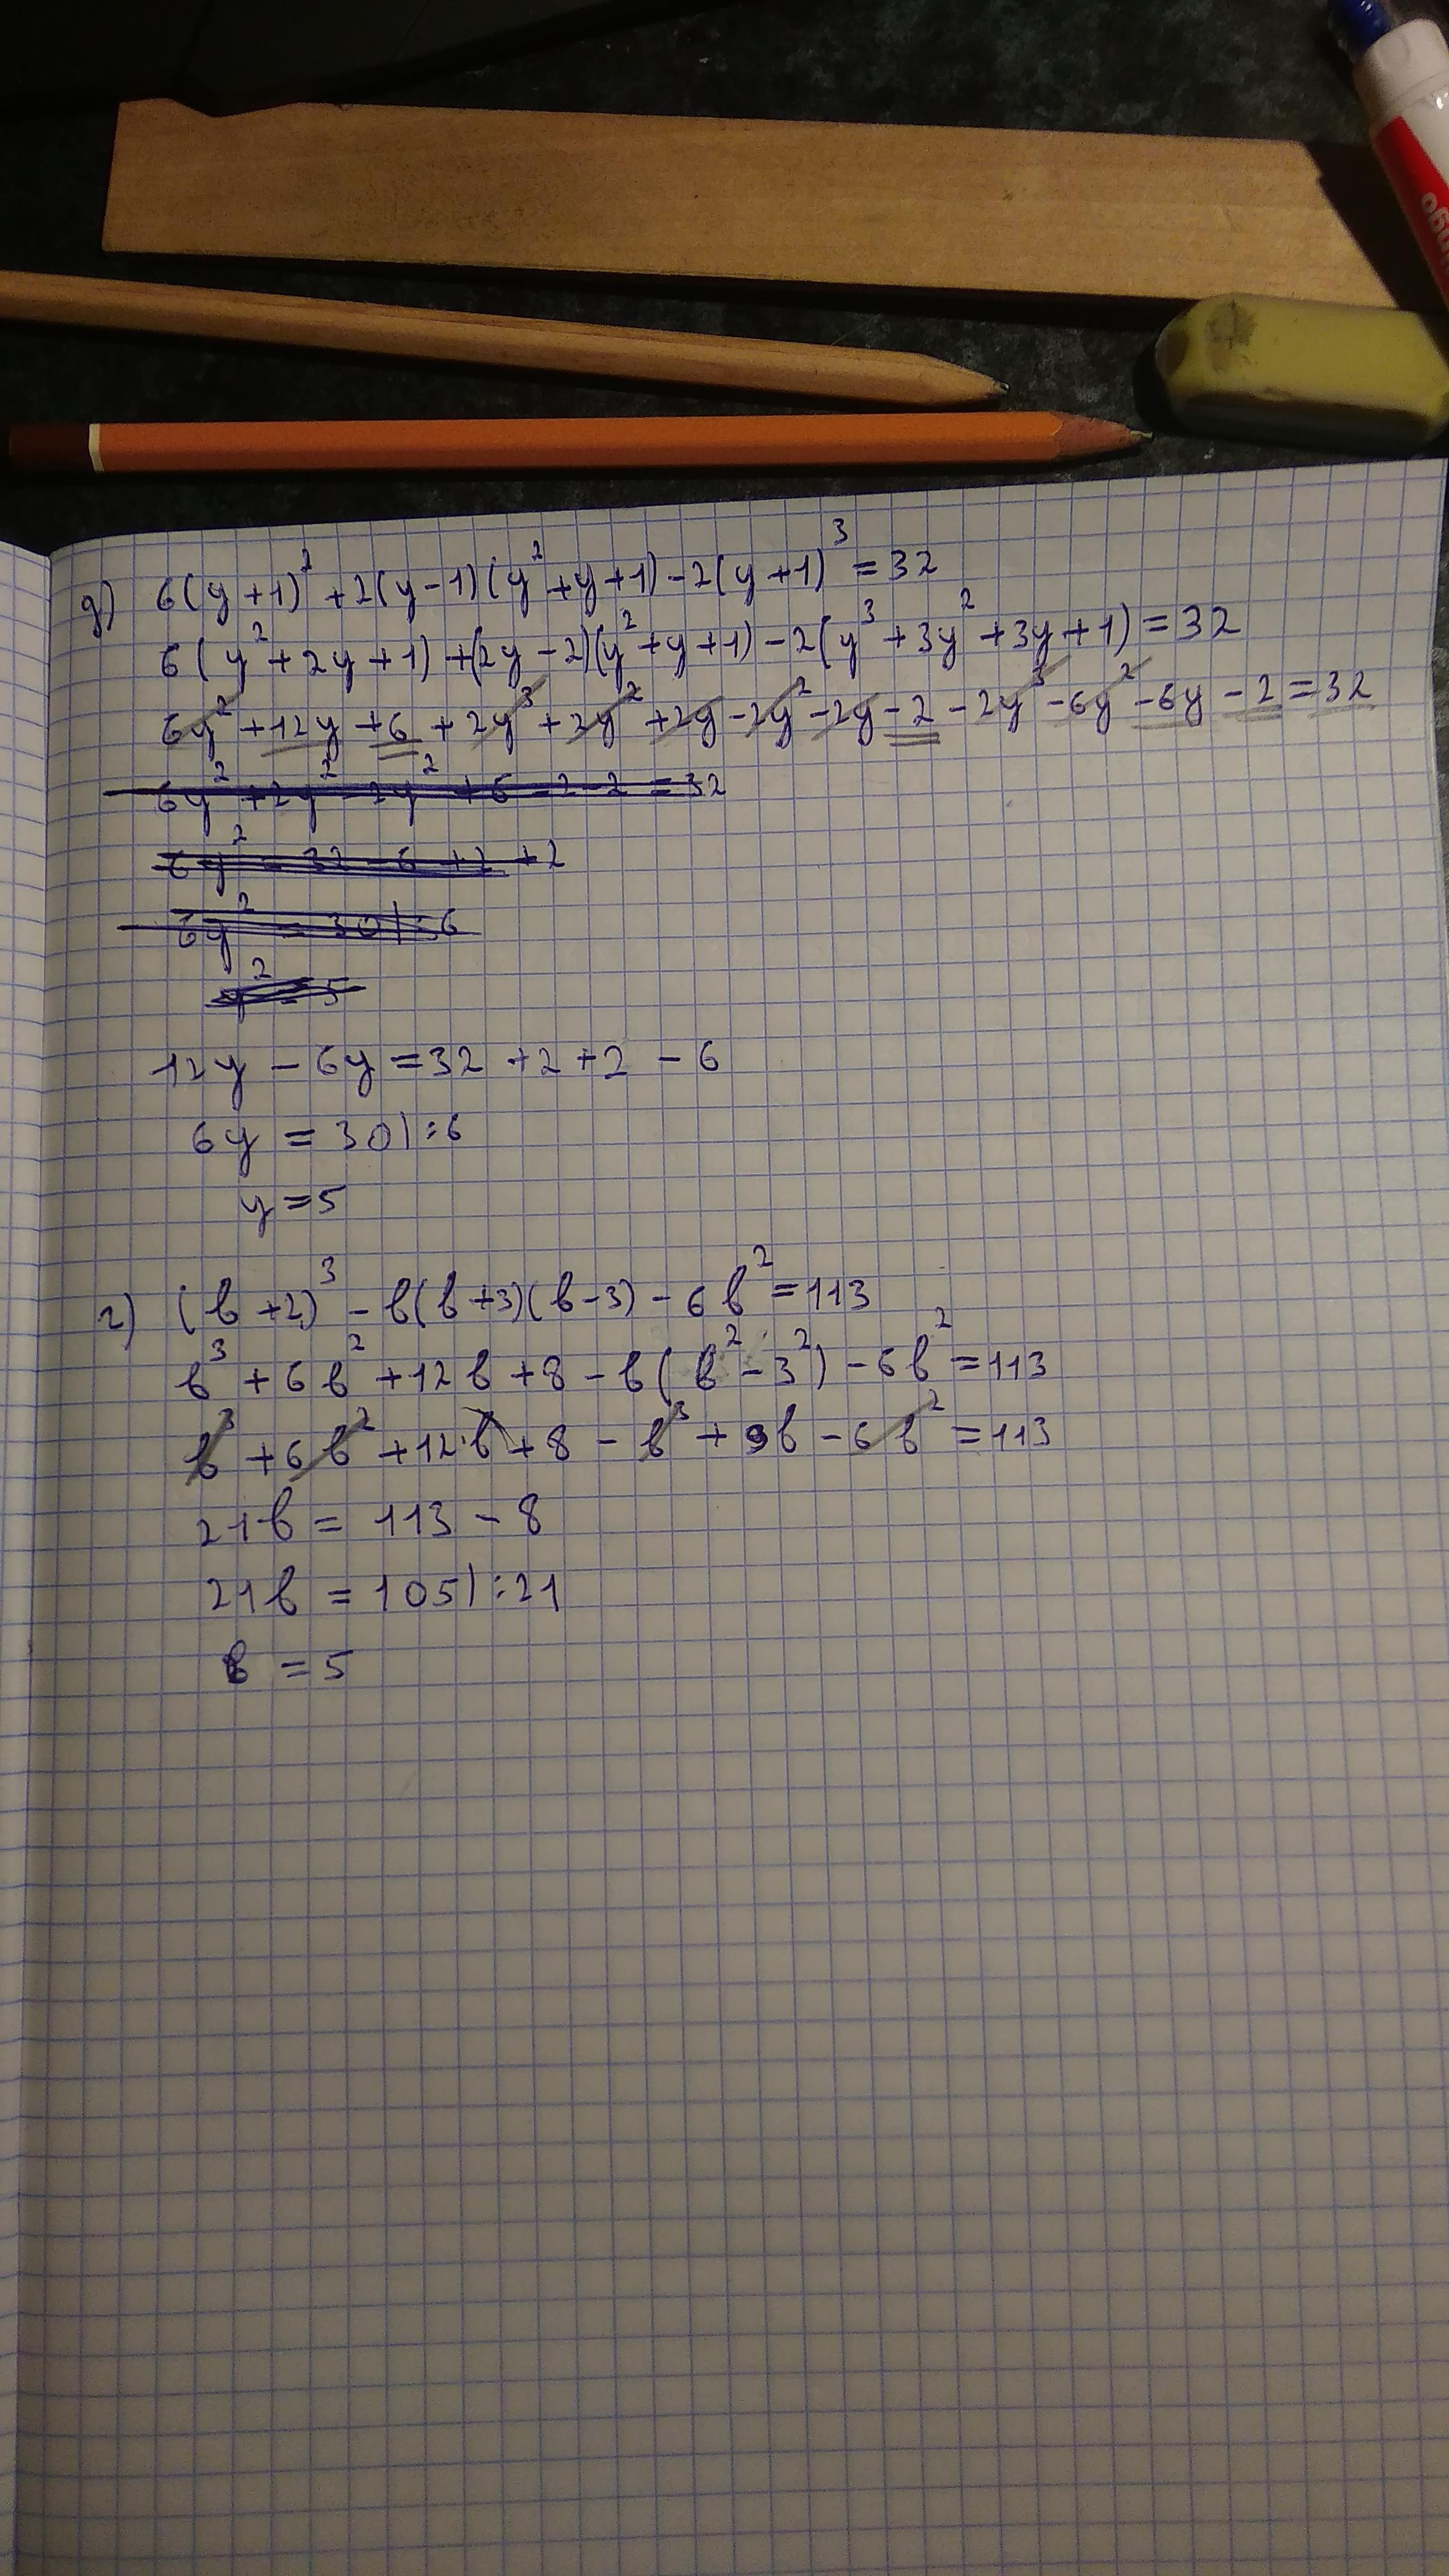 д) 6(y+1)² + 2(y-1)(y²+y+1) - 2(y+1)³ = 32
6(y²+2y+1) + (2y-2)(y²+y+1) - 2(y³+3y²+3y+1) = 32
6y² + 12y + 6 + 2y³ + 2y² + 2y - 2y² - 2y - 2 - 2y³ - 6y² - 6y - 2 = 32
6y² + 2y² - 2y² + 6 - 2 - 2 = 32
6y² = 32 - 6 + 2 + 2
6y² = 30 |:6
y² = 5
12y - 6y = 32 + 2 + 2 - 6
6y = 30 |:6
y = 5
г) (b+2)³ - b(b+3)(b-3) - 6b² = 113
b³ + 6b² + 12b + 8 - b(b²-3²) - 6b² = 113
b³ + 6b² + 12·b + 8 - b³ + 9b - 6b² = 113
21b = 113 - 8
21b = 105 |:21
b = 5